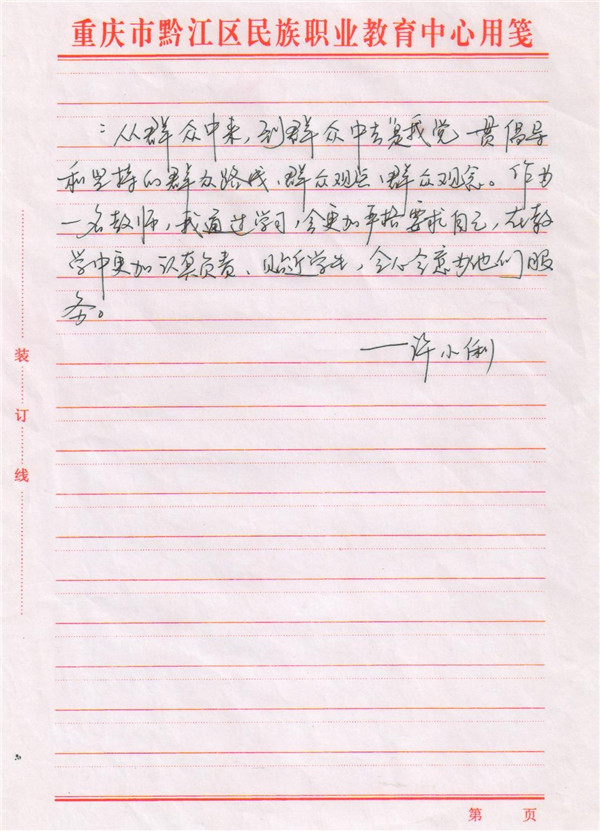 重庆市黔江区民族职业教育中心用笺
：从群众中来，到群众中去是我党一贯倡导
和坚持的群众路线、群众观点、群众观念。作为
一名教师，我通过学习，会更加严格要求自己，在教
学中更加认真负责、贴近学生，全心全意为他们服
务。
——许小俐
装
订
线
第 页